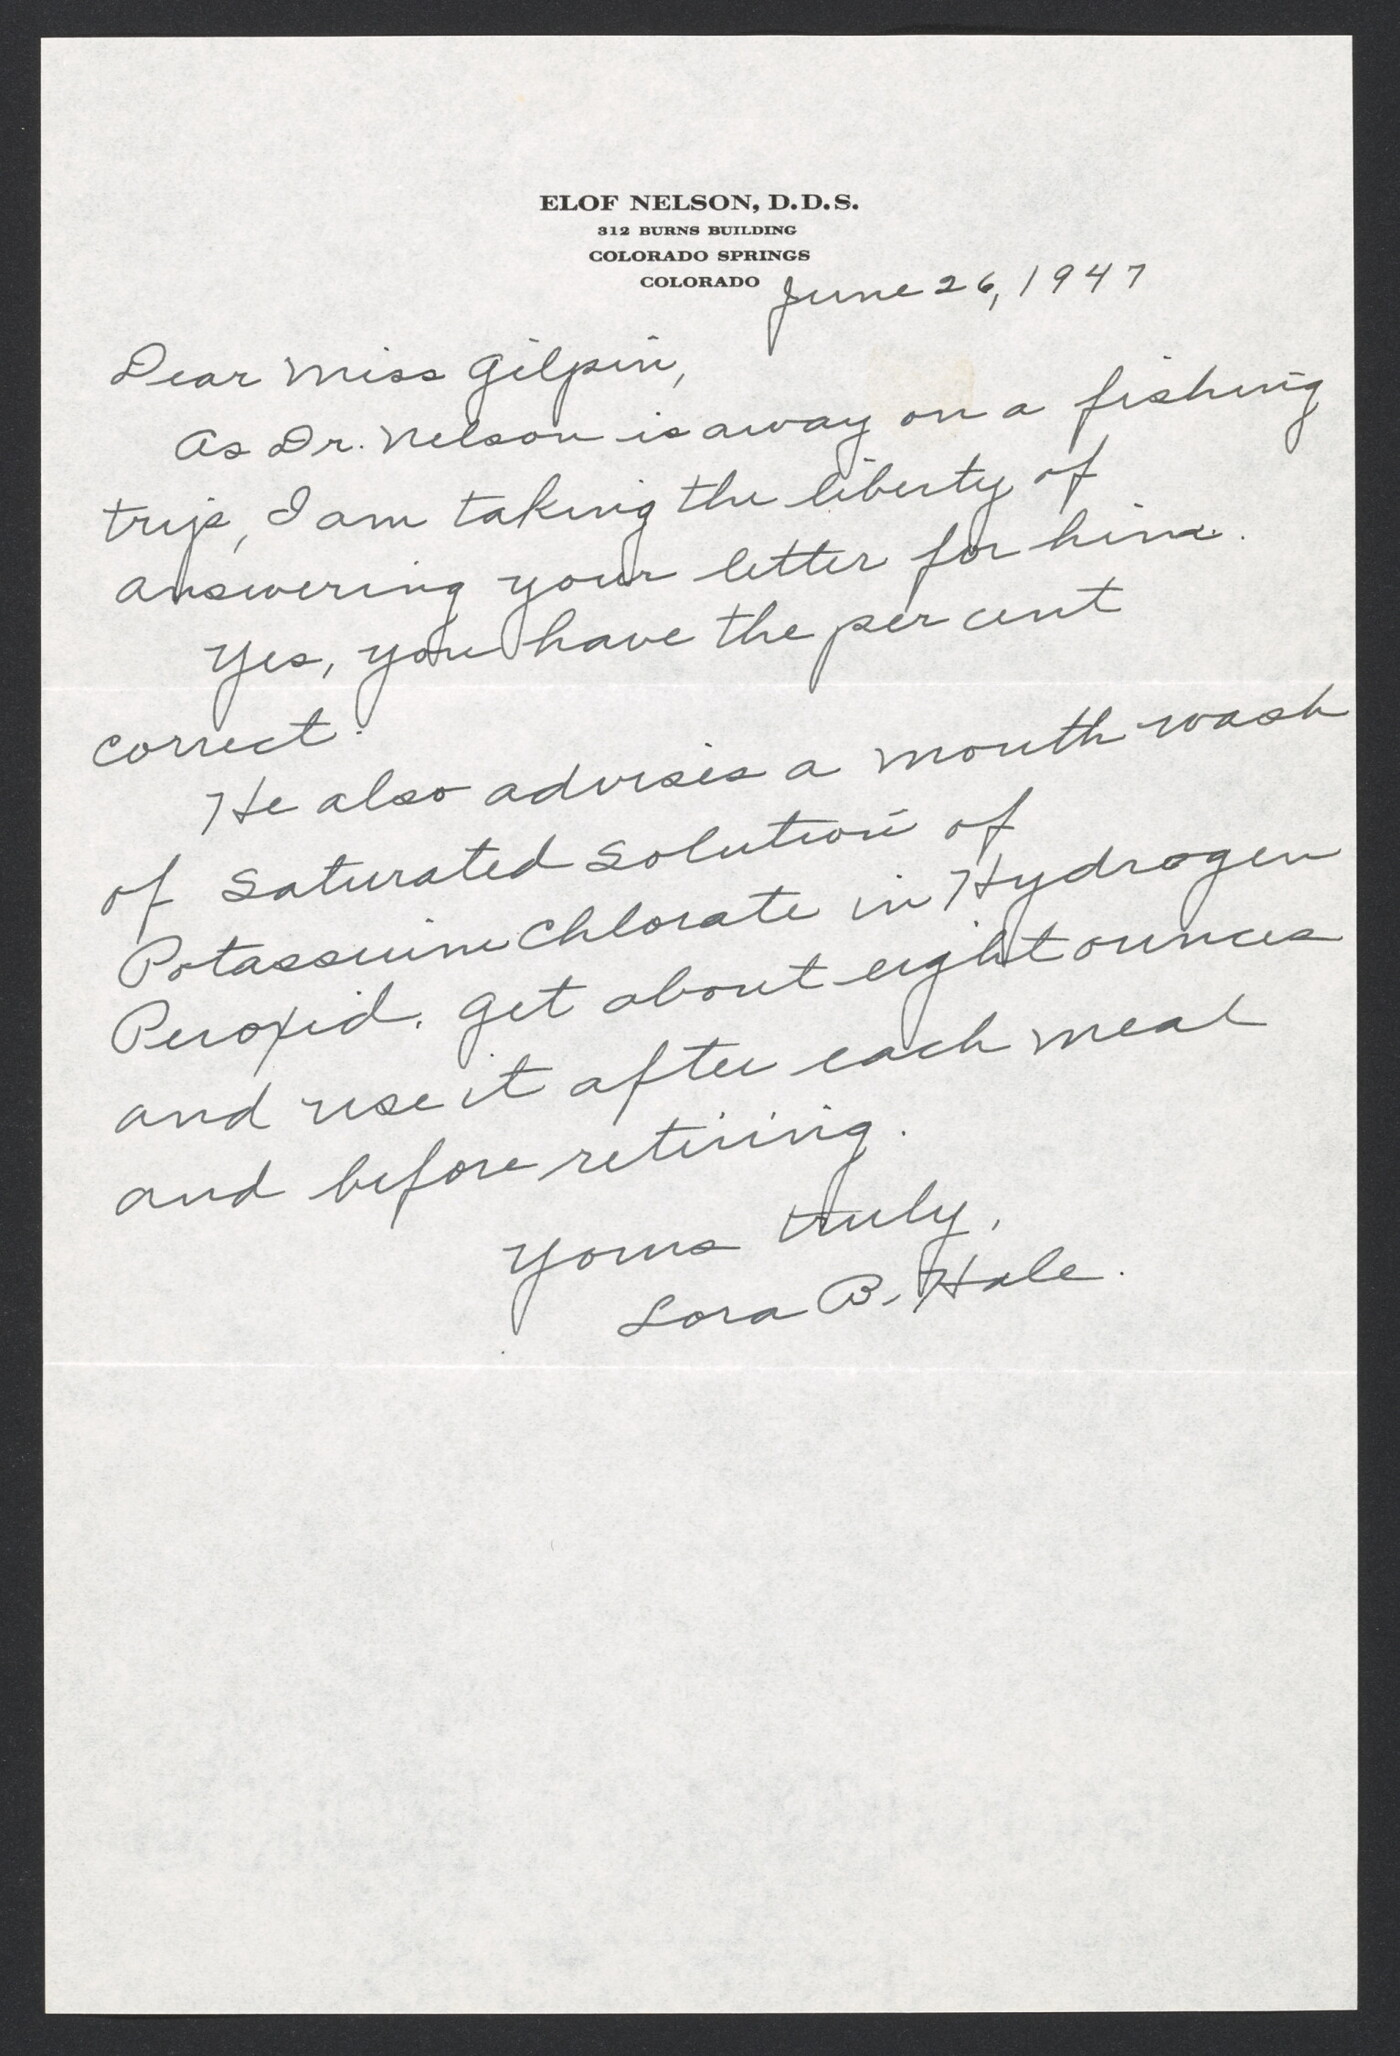 ELOF NELSON, D.D.S.
312 BURNS BUILDING
COLORADO SPRINGS
COLORADO
June 26, 1947
Dear Miss Gilpin,
As Dr. Nelson is away on a fishing
trip, I am taking the liberty of
answering your letter for him.
Yes, you have the per cent
correct.
He also advises a mouth wash
of saturated solution of
Potassium Chlorate in Hydrogen
Peroxid. Get about eight ounces
and use it after each meal
and before retiring.
Yours truly,
Lora B. Hale.